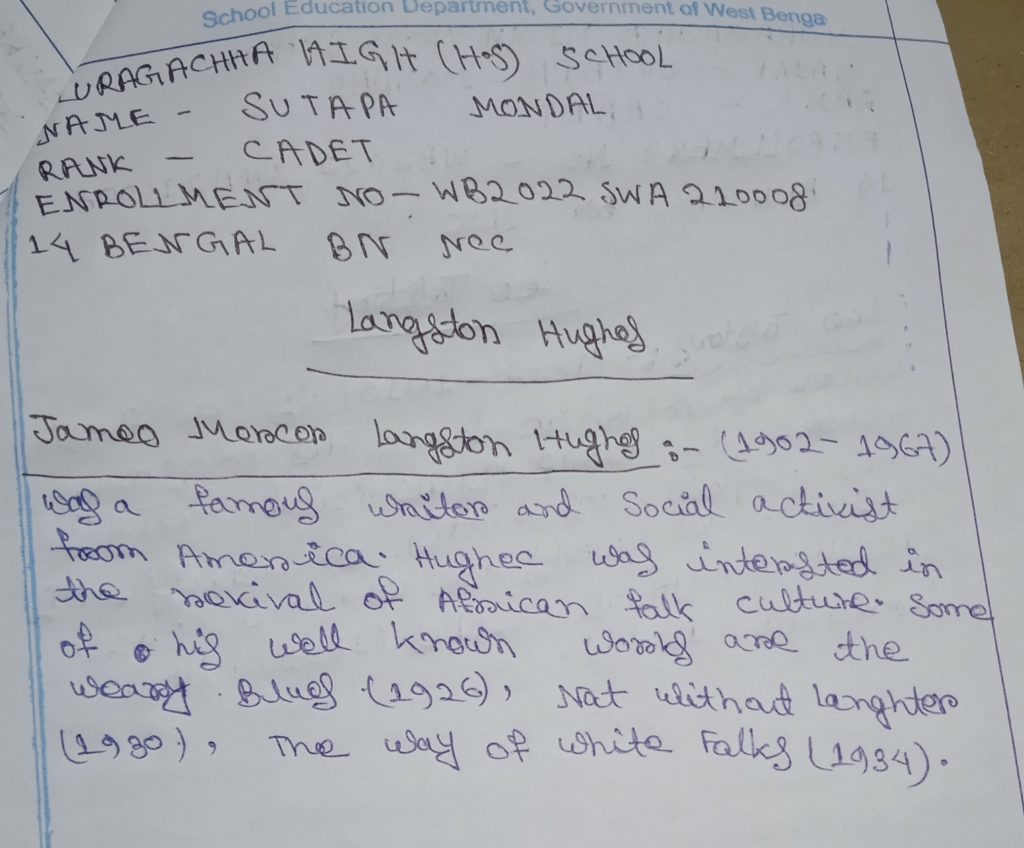 School Education Department, Government of West Benga
URAGACHHA HIGH (H.S) SCHOOL
NAME - SUTAPA MONDAL
RANK - CADET
ENROLLMENT NO - WB2022 SWA 210008
14 BENGAL BN NCC
Langston Hughes
James Mercer Langston Hughes :- (1902 - 1967)
was a famous writer and Social activist
from America. Hughec was intersted in
the rexival of African falk culture. Some
of his well known works are the
weary Blues (1926), Nat without Langhter
(1930), The way of white Falks (1934).